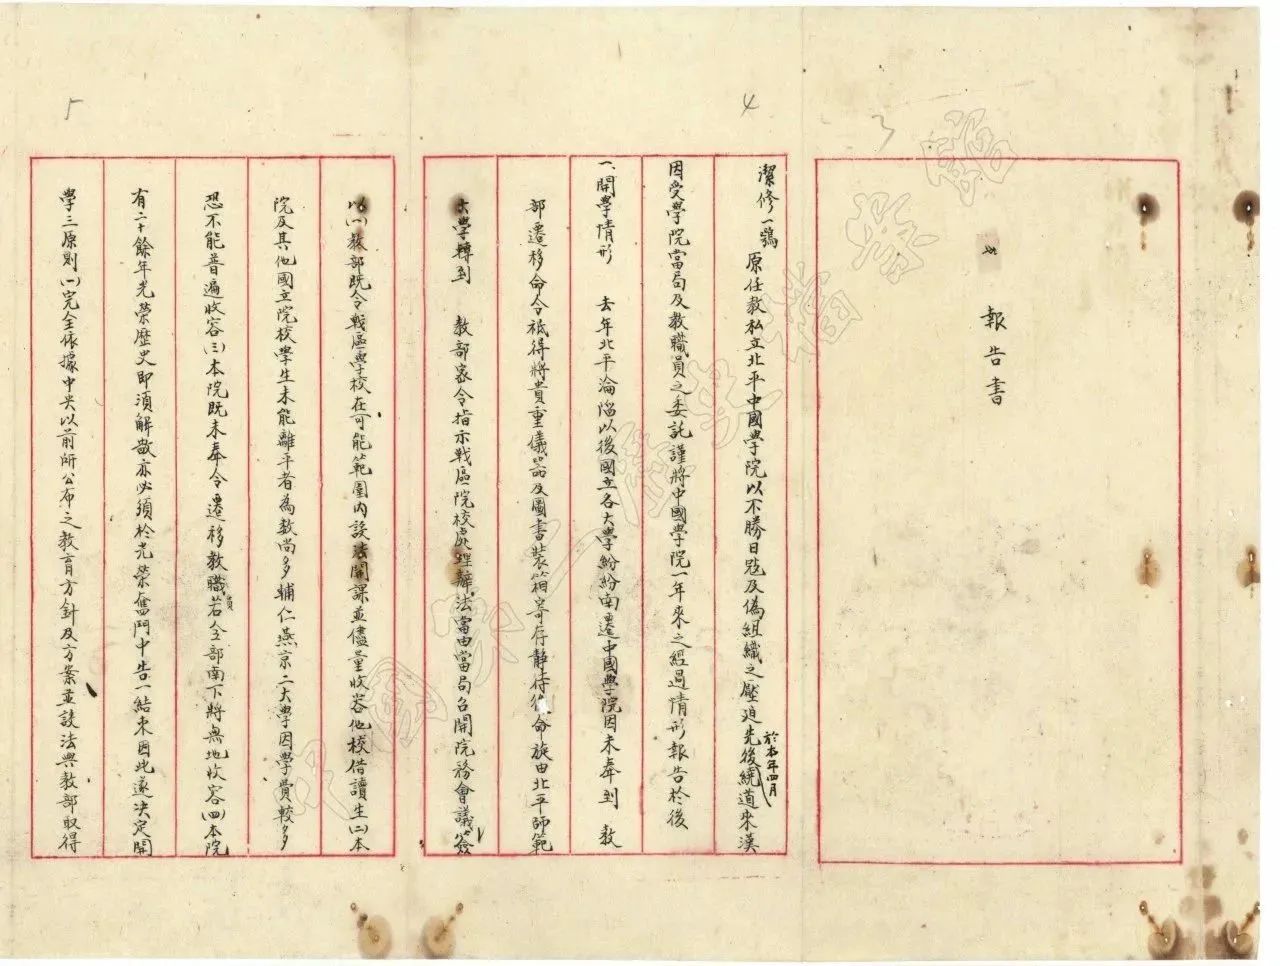 3
報告書
4
潔修一鶚原任教私立北平中國學院以不勝日寇及偽組織之壓迫先後於本年四月繞道來漢
因受學院當局及教職員之委託謹將中國學院一年來之經過情形報告於後
一開學情形 去年北平淪陷以後國立各大學紛紛南遷中國學院因未奉到 教
部遷移命令祇得將貴重儀器及圖書裝箱寄存靜待後命旋由北平師範
大學轉到 教部密令指示戰區院校處理辦法當由當局召開院務會議僉
5
以(一)教部既令戰區學校在可能範圍內設法開課並儘量收容他校借讀生(二)本
院及其他國立院校學生未能離平者為數尚多輔仁燕京二大學因學費較多
恐不能普遍收容(三)本院既未奉令遷移教職員若全部南下將無地收容(四)本院
有二十餘年光榮歷史即須解散亦必須於光榮奮鬥中告一結束因此遂決定開
學三原則(一)完全依據中央以前所公布之教育方針及方案並設法與教部取得